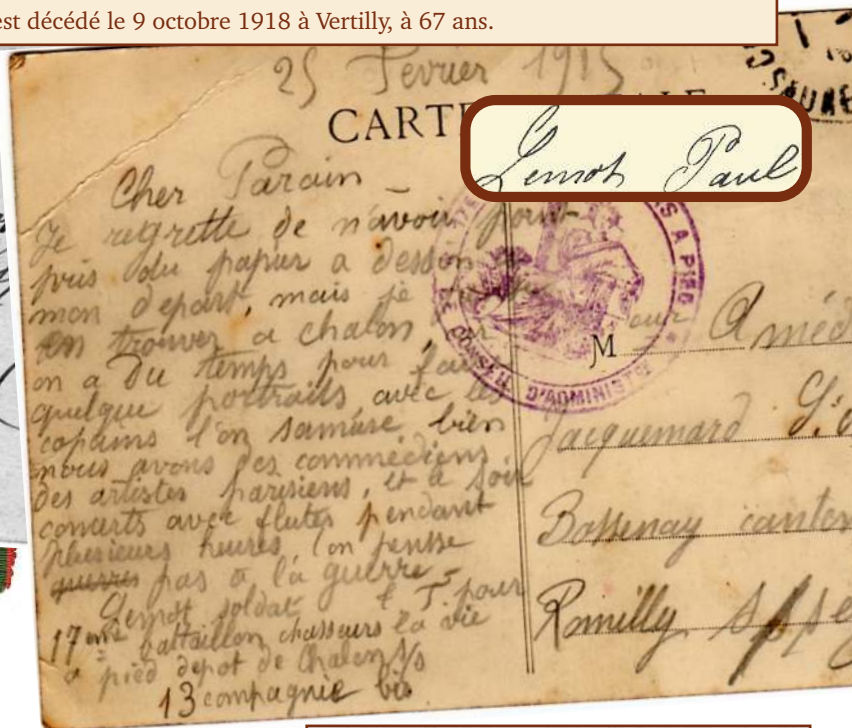 est décédé le 9 octobre 1918 à Vertilly, à 67 ans.
25 Fevrier 1915
CARTE
Lemot Paul
Cher Parain
Je regrette de n'avoir point
pris du papier a dessin
mon depart, mais je
en trouver a chalon,
on a du temps pour fai
quelque portraits avec les
copains l'on samuse bien
nous avons des commédiens
des artistes parisiens, et a soir
concerts avec flutes pendant
plusieurs heures, l'on pensse
pas a la guerre
Lemot soldat pour
17eme battaillon chasseurs la vie
a pied depot de Chalon s/s
13 compagnie bis
S A PIED
CONSEIL D'ADMINIST
M our Améd
Jacquemard
Bossenay canton
Romilly s/s